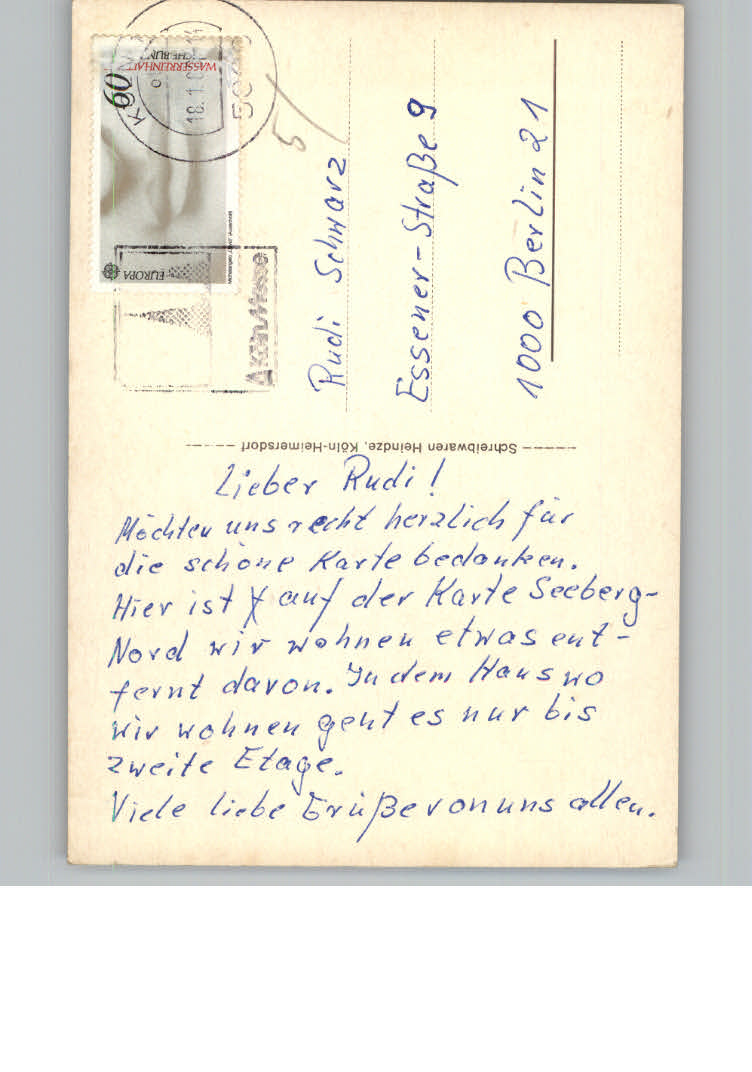 Lieber Rudi!
Möchten uns recht herzlich für
die schöne Karte bedanken.
Hier ist X auf der Karte Seeberg-
Nord wir wohnen etwas ent-
fernt davon. In dem Haus wo
wir wohnen geht es nur bis
zweite Etage.
Viele liebe Grüße von uns allen.
Schreibwaren Heindze, Köln-Heimersdorf
Rudi Schwarz
Essener-Straße 9
1000 Berlin 21
5
60
EUROPA
18.1.
Köln Messe